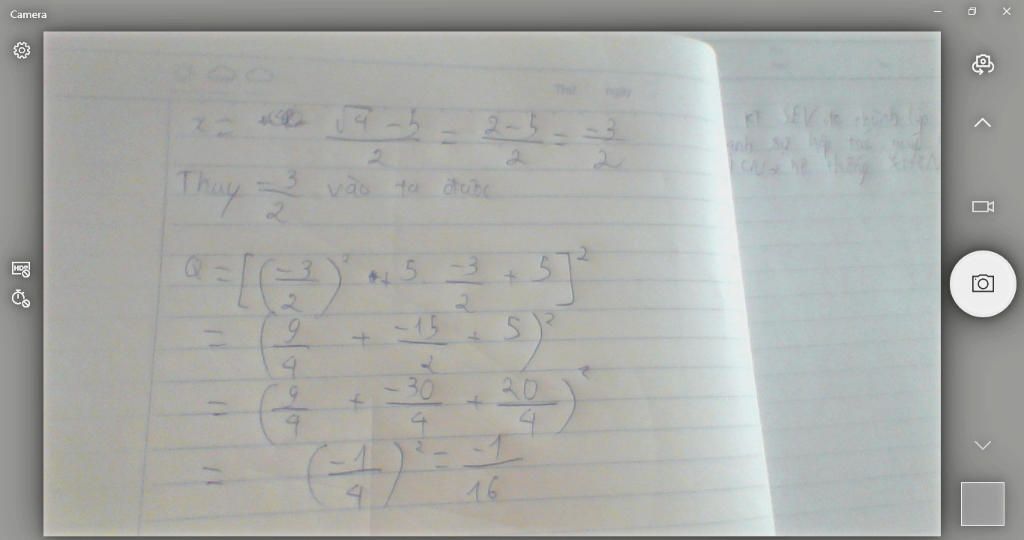 Camera
Thứ ngày
x = \frac{\sqrt{4} - 5}{2} = \frac{2-5}{2} = \frac{-3}{2}
Thay \frac{-3}{2} vào ta được
Q = [(\frac{-3}{2})^2 + 5 . \frac{-3}{2} + 5]^2
= (\frac{9}{4} + \frac{-15}{2} + 5)^2
= (\frac{9}{4} + \frac{-30}{4} + \frac{20}{4})^2
= (\frac{-1}{4})^2 = \frac{-1}{16}